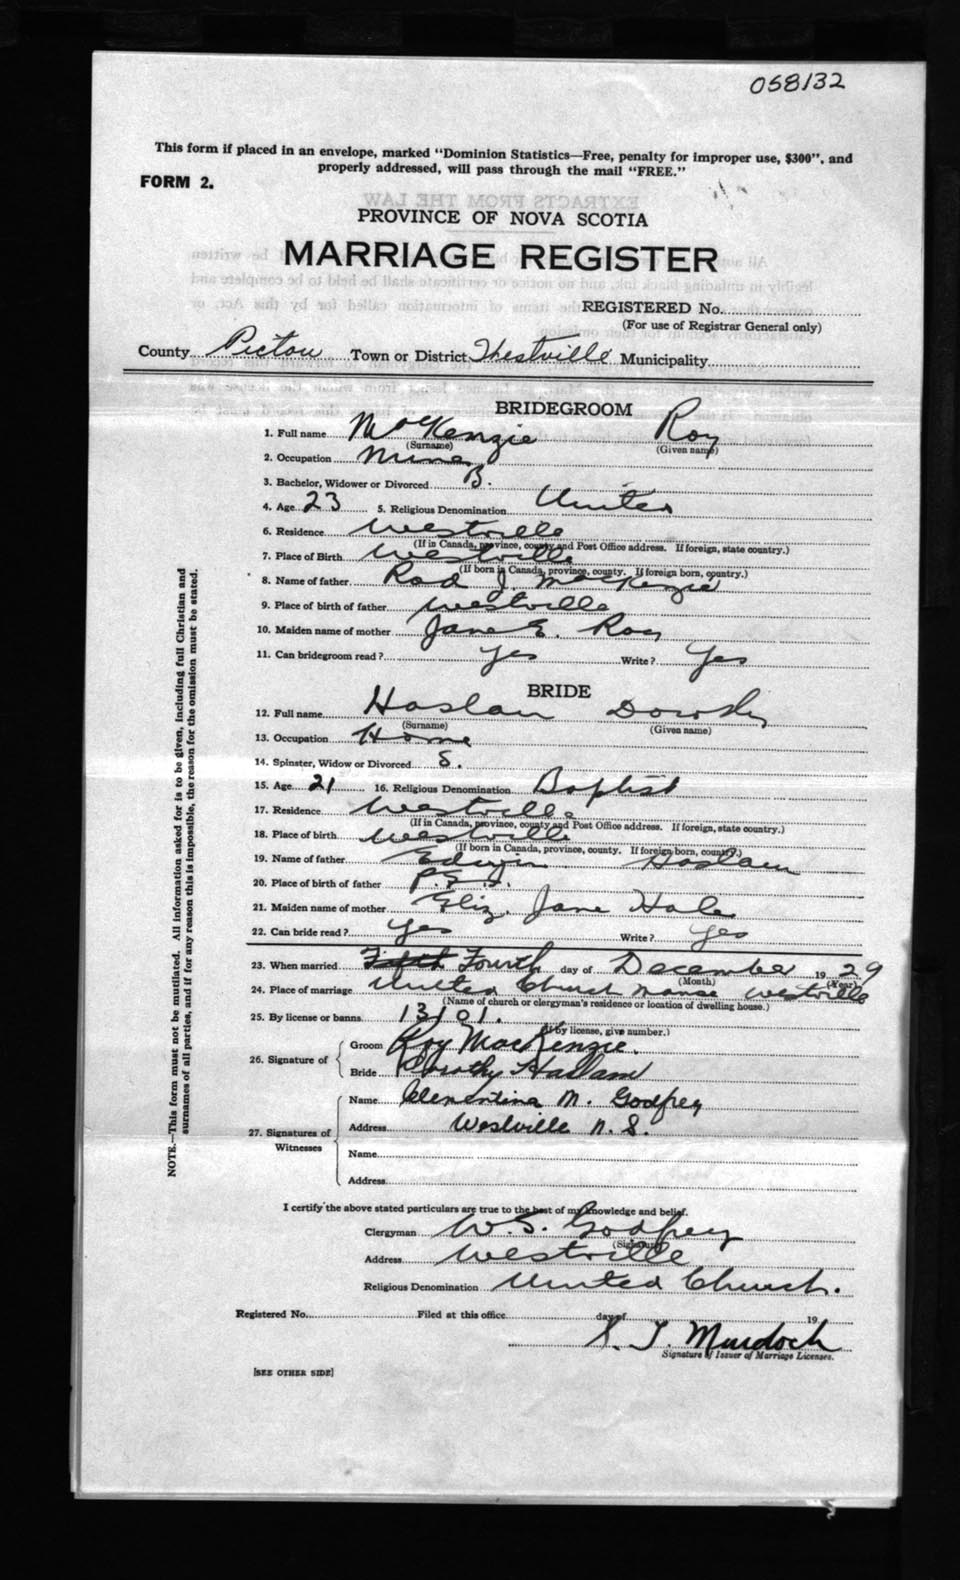 058132
This form if placed in an envelope, marked "Dominion Statistics—Free, penalty for improper use, $300", and
properly addressed, will pass through the mail "FREE."
FORM 2.
PROVINCE OF NOVA SCOTIA
MARRIAGE REGISTER
REGISTERED No.
(For use of Registrar General only)
County Pictou Town or District Westville Municipality
BRIDEGROOM
1. Full name MacKenzie Roy
(Surname) (Given name)
2. Occupation Miner
3. Bachelor, Widower or Divorced B.
4. Age 23 5. Religious Denomination United
6. Residence Westville
(If in Canada, province, county and Post Office address. If foreign, state country.)
7. Place of Birth Westville
(If born in Canada, province, county. If foreign born, country.)
8. Name of father Rod J. MacKenzie
9. Place of birth of father Westville
10. Maiden name of mother Jane E. Roy
11. Can bridegroom read? Yes Write? Yes
BRIDE
12. Full name Haslam Dorothy
(Surname) (Given name)
13. Occupation Home
14. Spinster, Widow or Divorced S.
15. Age 21 16. Religious Denomination Baptist
17. Residence Westville
(If in Canada, province, county and Post Office address. If foreign, state country.)
18. Place of birth Westville
(If born in Canada, province, county. If foreign born, country.)
19. Name of father Edwin Haslam
20. Place of birth of father P.E.I.
21. Maiden name of mother Eliz. Jane Hale
22. Can bride read? Yes Write? Yes
23. When married Fifth Fourth day of December 1929
(Month) (Year)
24. Place of marriage United Church Manse Westville
(Name of church or clergyman's residence or location of dwelling house.)
25. By license or banns 13101.
(If by license, give number.)
26. Signature of
Groom Roy MacKenzie.
Bride Dorothy Haslam
27. Signatures of Witnesses
Name Clementina M. Godfrey
Address Westville N.S.
Name
Address
I certify the above stated particulars are true to the best of my knowledge and belief.
Clergyman W.S. Godfrey
(Signature)
Address Westville
Religious Denomination United Church.
Registered No. Filed at this office day of 19
T. Murdoch
Signature of Issuer of Marriage Licenses.
[SEE OTHER SIDE]
NOTE.—This form must not be mutilated. All information asked for is to be given, including full Christian and
surnames of all parties, and if for any reason this is impossible, the reason for the omission must be stated.